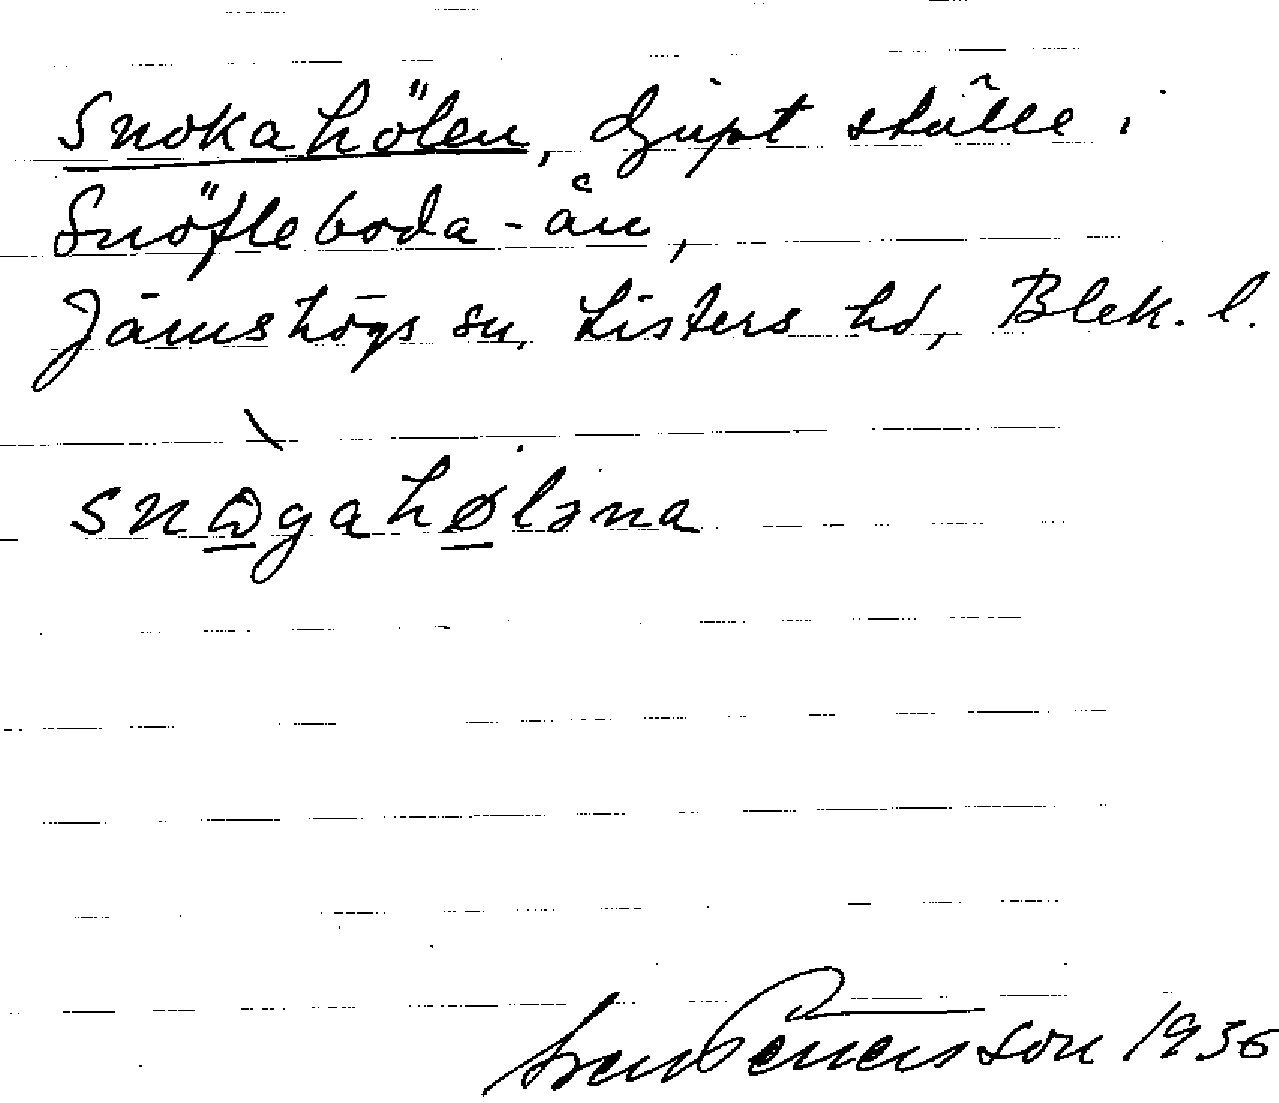 Snokahölen, djupt ställe i
Snöfleboda-ån,
Jämshögs sn, Listers hd, Blek. l.
snɷ̠̀gahø̠ləna
Sven Benson 1936